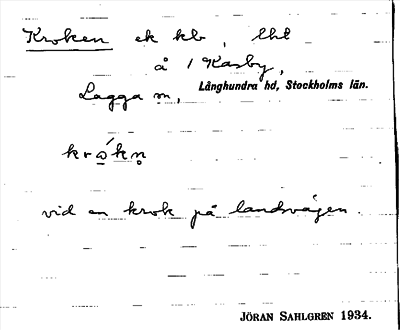 Kroken ek kb, lht
å 1 Kasby,
Lagga sn, Långhundra hd, Stockholms län.
vid en krok på landsvägen.
JÖRAN SAHLGREN 1934.